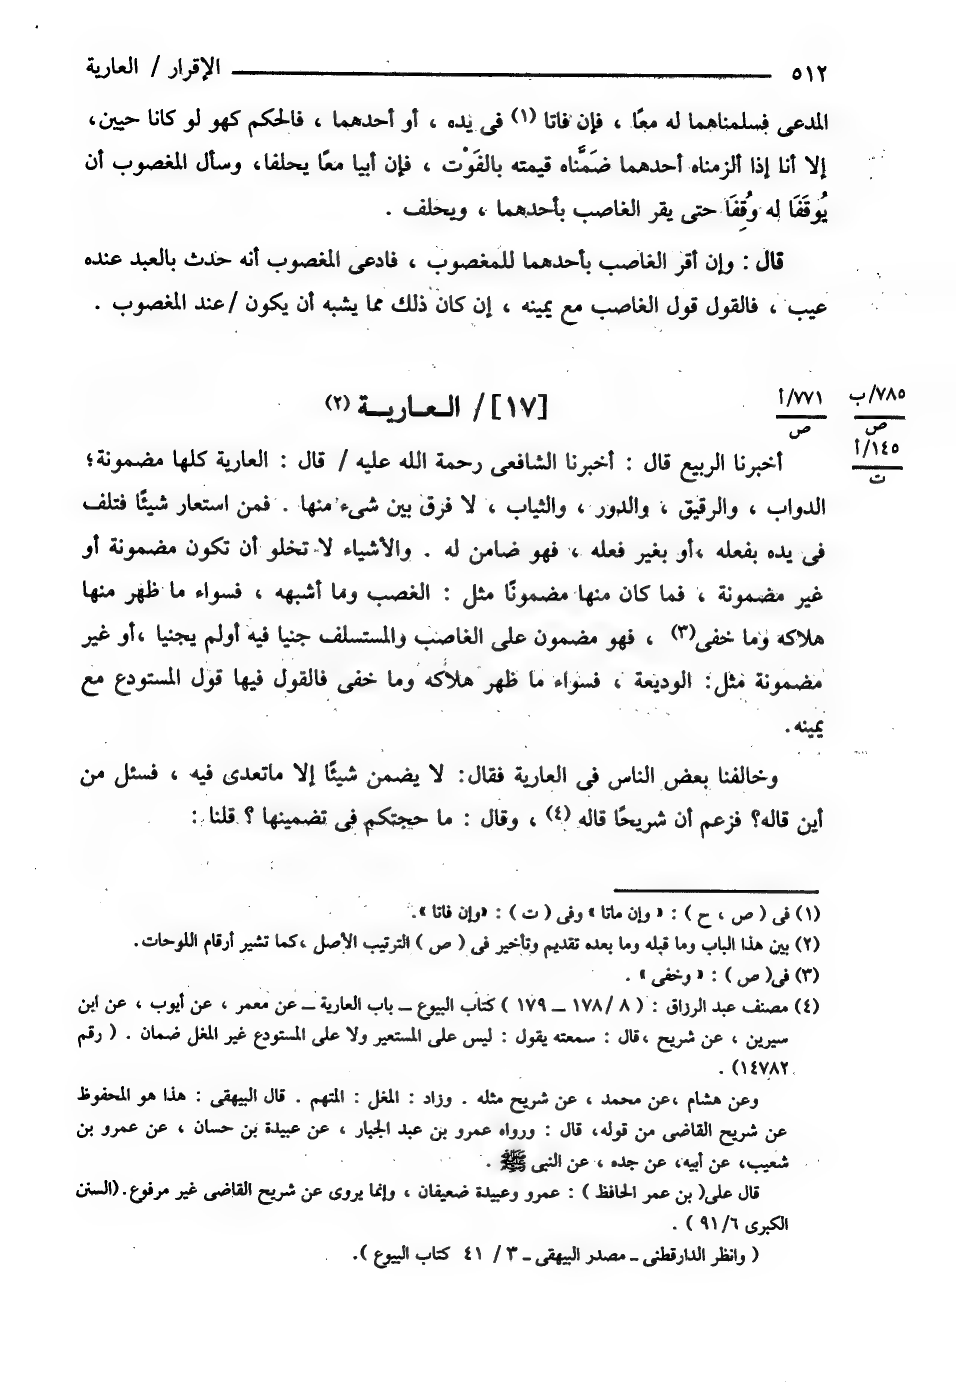 ٥١٢ ــــــــــــــــــــ الإقرار / العارية
المدعى فسلمناهما له معًا ، فإن فاتا (١) فى يده ، أو أحدهما ، فالحكم كهو لو كانا حيين،
إلا أنا إذا ألزمناه أحدهما ضَمَّناه قيمته بالفَوْت ، فإن أبيا معًا يحلفا، وسأل المغصوب أن
يُوقَفَا له وُقِفَا حتى يقر الغاصب بأحدهما ، ويحلف .
قال : وإن أقر الغاصب بأحدهما للمغصوب ، فادعى المغصوب أنه حدث بالعبد عنده
عيب ، فالقول قول الغاصب مع يمينه ، إن كان ذلك مما يشبه أن يكون / عند المغصوب .
٧٨٥/ب
ص
٧٧١/أ
ص
[١٧] / العاريــة (٢)
١٤٥/أ
ت
أخبرنا الربيع قال : أخبرنا الشافعى رحمة الله عليه / قال : العارية كلها مضمونة؛
الدواب ، والرقيق ، والدور ، والثياب ، لا فرق بين شىء منها . فمن استعار شيئًا فتلف
فى يده بفعله ،أو بغير فعله ، فهو ضامن له . والأشياء لا تخلو أن تكون مضمونة أو
غير مضمونة ، فما كان منها مضمونًا مثل : الغصب وما أشبهه ، فسواء ما ظهر منها
هلاكه وما خفى(٣) ، فهو مضمون على الغاصب والمستسلف جنيا فيه أولم يجنيا ،أو غير
مضمونة مثل: الوديعة ، فسواء ما ظهر هلاكه وما خفى فالقول فيها قول المستودع مع
يمينه.
وخالفنا بعض الناس فى العارية فقال: لا يضمن شيئًا إلا ماتعدى فيه ، فسئل من
أين قاله؟ فزعم أن شريحًا قاله (٤) ، وقال : ما حجتكم فى تضمينها ؟ قلنا :
(١) فى ( ص ، ح ) : « وإن ماتا » وفى ( ت ) : «وإن فاتا ».
(٢) بين هذا الباب وما قبله وما بعده تقديم وتأخير فى ( ص ) الترتيب الأصل ،كما تشير أرقام اللوحات.
(٣) فى( ص ) : « وخفى » .
(٤) مصنف عبد الرزاق : ( ٨ /١٧٨ ــ ١٧٩ ) كتاب البيوع ــ باب العارية ــ عن معمر ، عن أيوب ، عن ابن
سيرين ، عن شريح ،قال : سمعته يقول : ليس على المستعير ولا على المستودع غير المغل ضمان . ( رقم
١٤٧٨٢) .
وعن هشام ،عن محمد ، عن شريح مثله . وزاد : المغل : المتهم . قال البيهقى : هذا هو المحفوظ
عن شريح القاضى من قوله، قال : ورواه عمرو بن عبد الجبار ، عن عبيدة بن حسان ، عن عمرو بن
شعيب، عن أبيه، عن جده ، عن النبى ﷺ .
قال على( بن عمر الحافظ ) : عمرو وعبيدة ضعيفان ، وإنما يروى عن شريح القاضى غير مرفوع.(السنن
الكبرى ٩١/٦ ) .
( وانظر الدارقطنى ـ مصدر البيهقى ـ ٣ / ٤١ كتاب البيوع ).